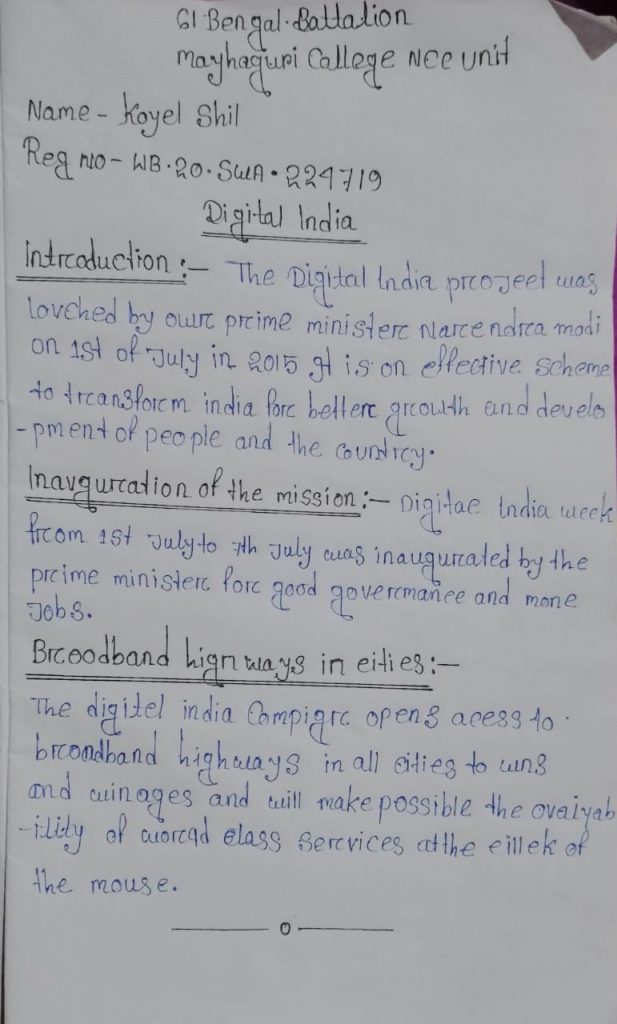 61 Bengal. Battalion
mayhaguri College NCC unit
Name - Koyel Shil
Reg no - WB.20.SWA.224719
Digital India
Introduction :-  The Digital India project was
lovched by our prime minister Narendra modi
on 1st of July in 2015 It is on effective scheme
to transform india for better growth and develo
-pment of people and the country.
Inavguration of the mission :- Digitae India week
from 1st July to 7th July was inaugurated by the
prime minister for good govermance and mone
Jobs.
Broodband highways in cities :-
The digitel india Compigr opens acess to
broandband highways in all cities to wns
and winages and will make possible the ovaiyab
-ility of worcqd class services at the cillek of
the mouse.
0